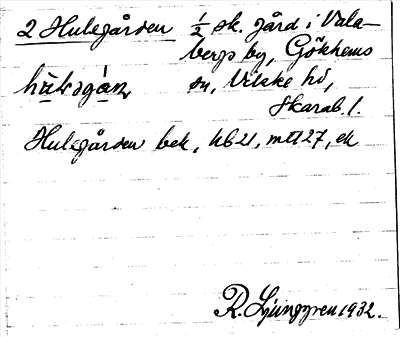 2 Hulegården ½ sk. gård i Vala-
bergs by, Gökhems
sn, Vilske hd,
Skarab. l.
Hulegården bek, hb 21, mtl 27, ek
R. Ljunggren 1932.